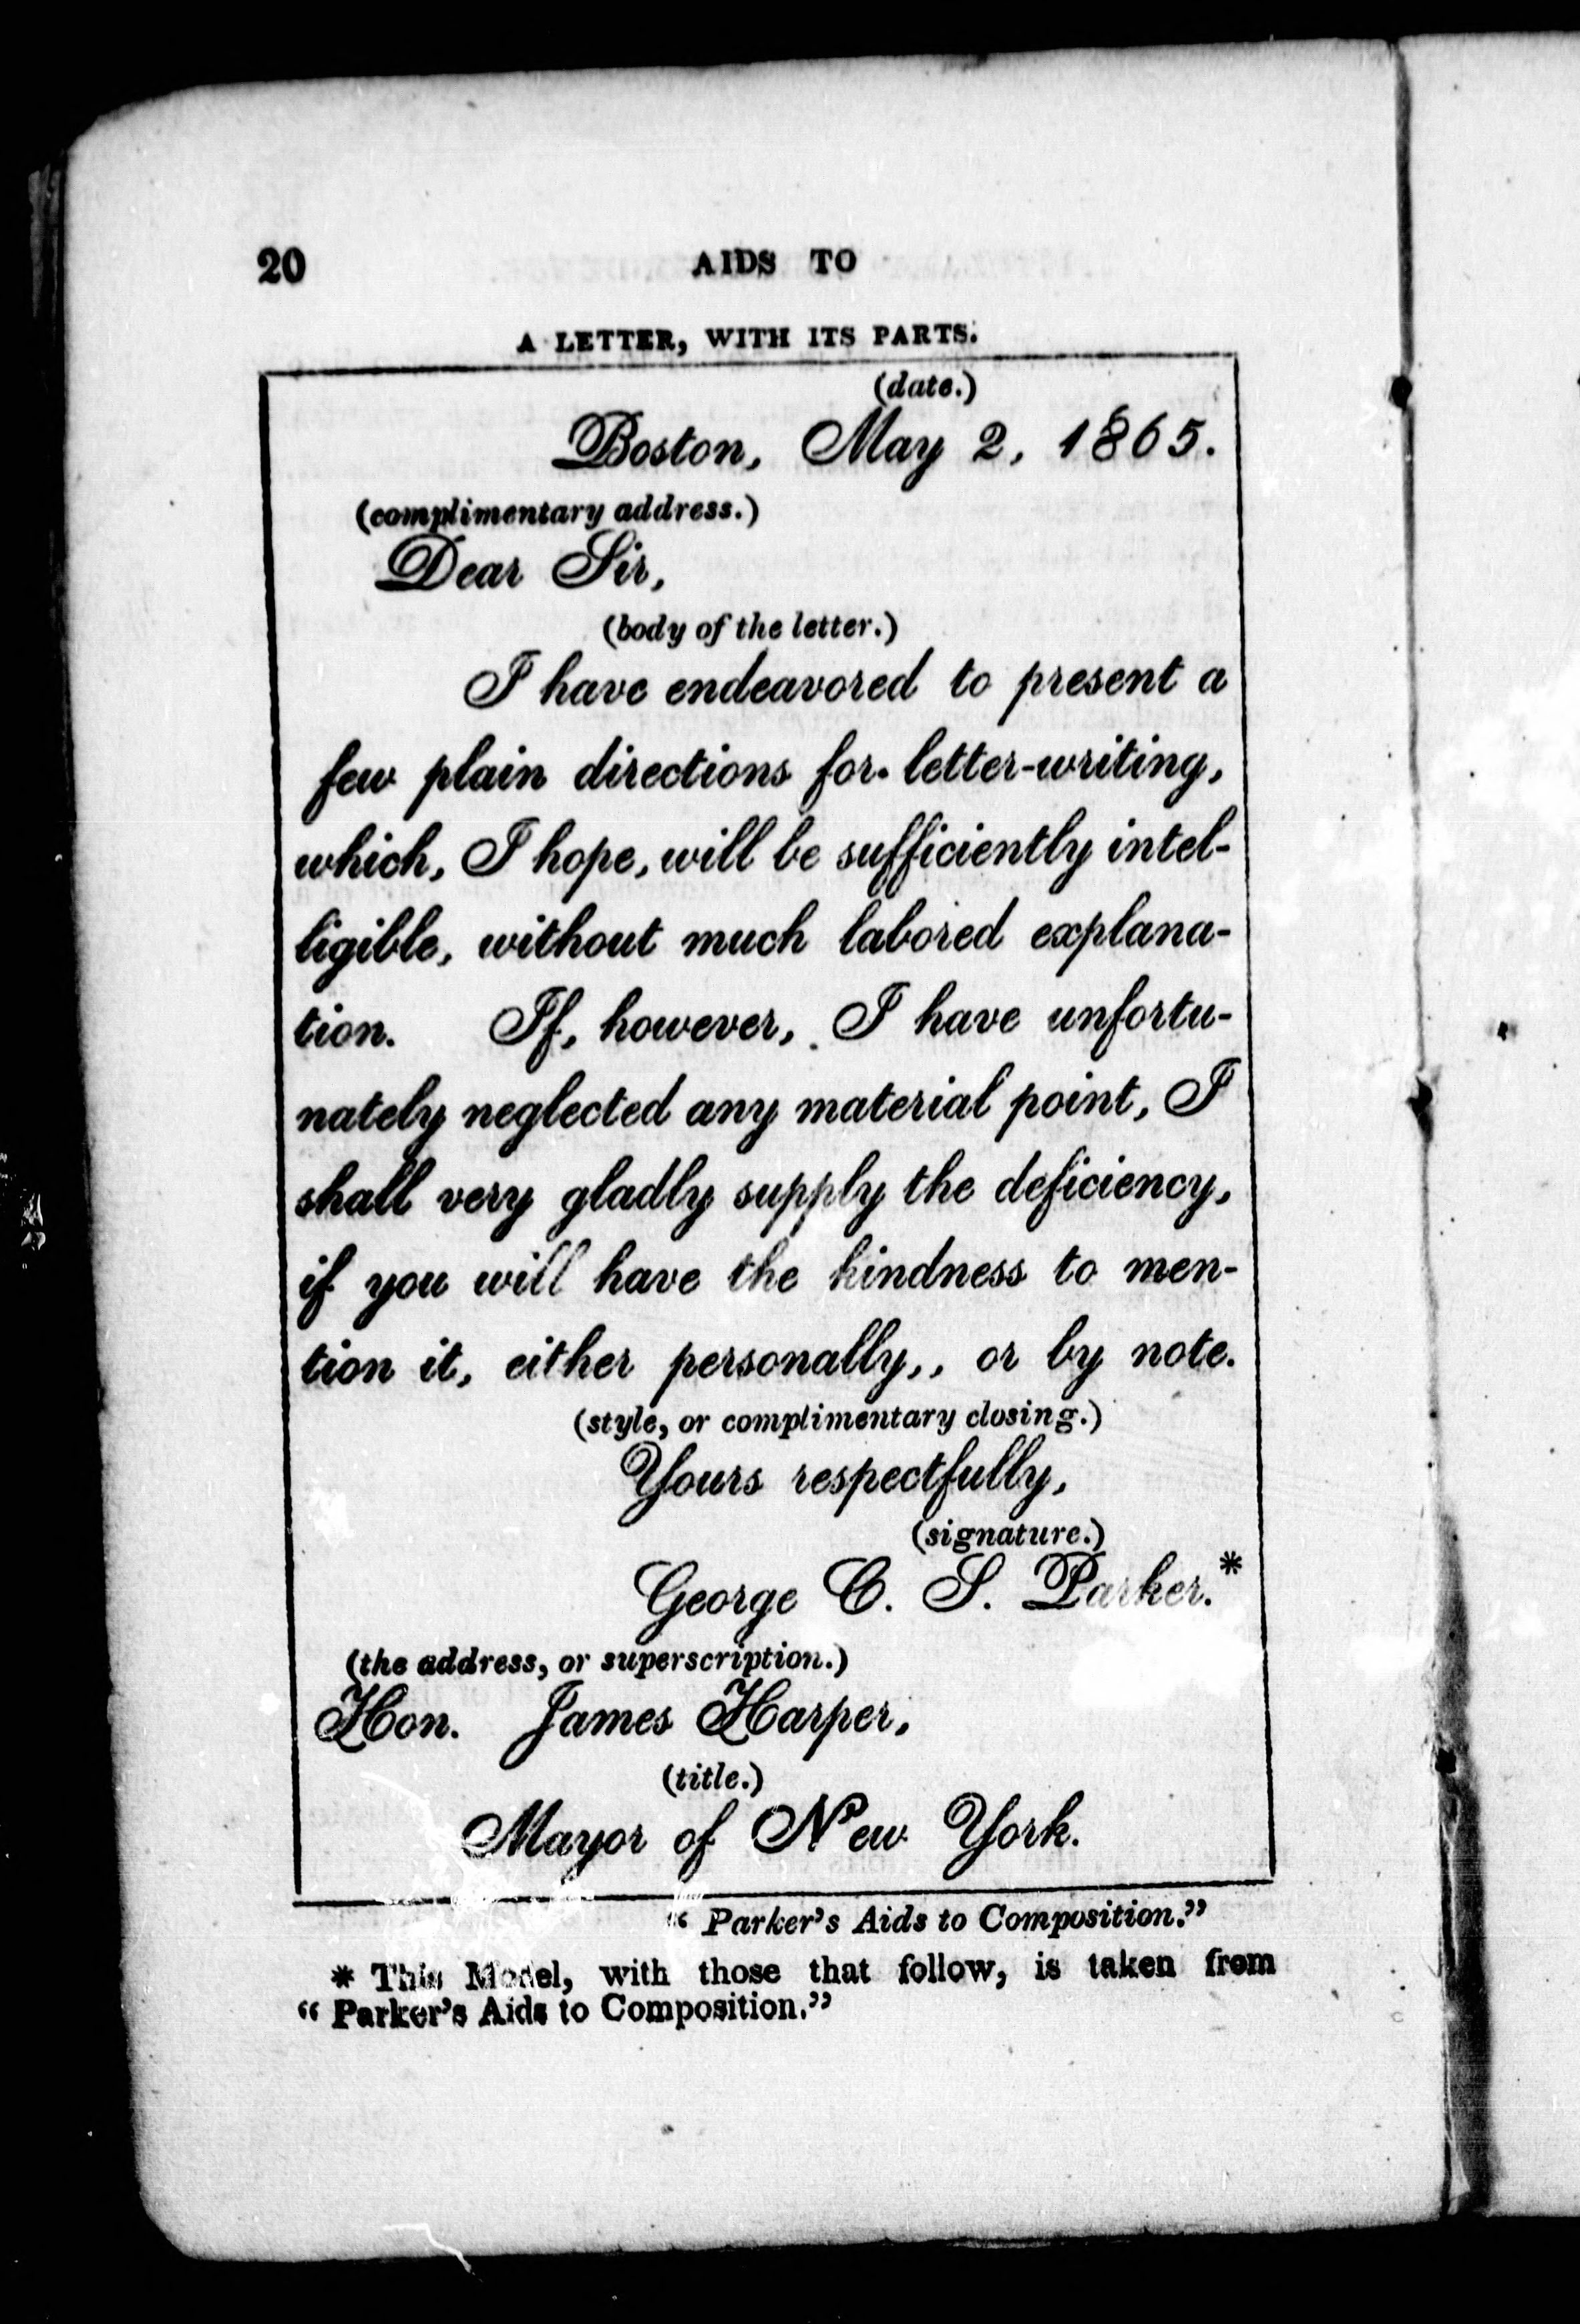 20 AIDS TO
A LETTER, WITH ITS PARTS.
(date.)
Boston, May 2, 1865.
(complimentary address.)
Dear Sir,
(body of the letter.)
I have endeavored to present a
few plain directions for. letter-writing,
which, I hope, will be sufficiently intel-
ligible, without much labored explana-
tion. If, however, I have unfortu-
nately neglected any material point, I
shall very gladly supply the deficiency,
if you will have the kindness to men-
tion it, either personally,, or by note.
(style, or complimentary closing.)
Yours respectfully,
(signature.)
George C. S. Parker.*
(the address, or superscription.)
Hon. James Harper,
(title.)
Mayor of New York.
“ Parker’s Aids to Composition.”
* This Model, with those that follow, is taken from
“ Parker’s Aids to Composition.”